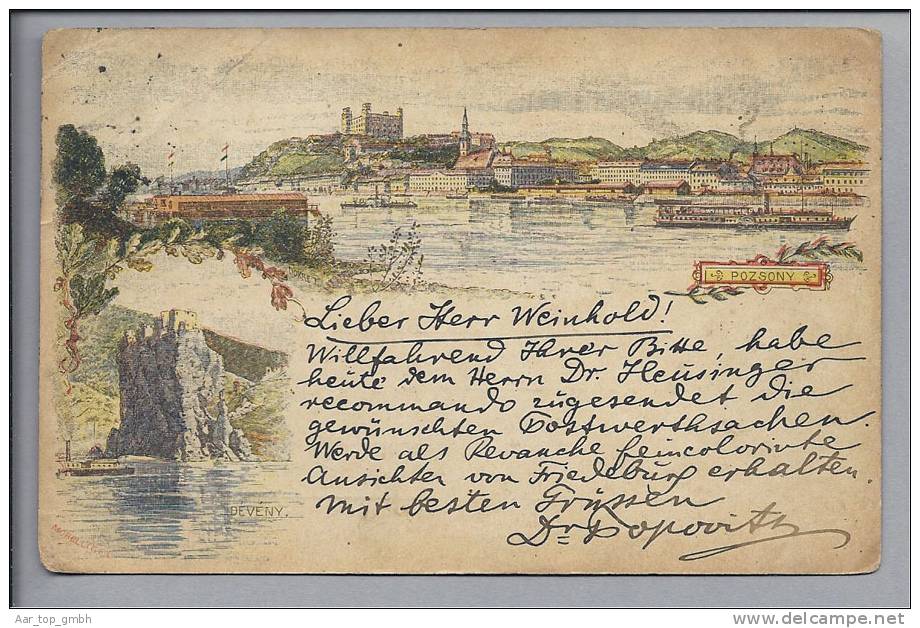 POZSONY
Lieber Herr Weinhold!
Willfahrend Ihrer Bitte, habe
heute dem Herrn Dr. Heusinger
recommando zugesendet die
gewünschten Postwerthsachen.
Werde als Revanche feincolorirte
Ansichten von Friedeburg erhalten.
Mit besten Grüssen
Dr Popovits
DÉVÉNY.
Aar_top_gmbh
www.delcampe.net